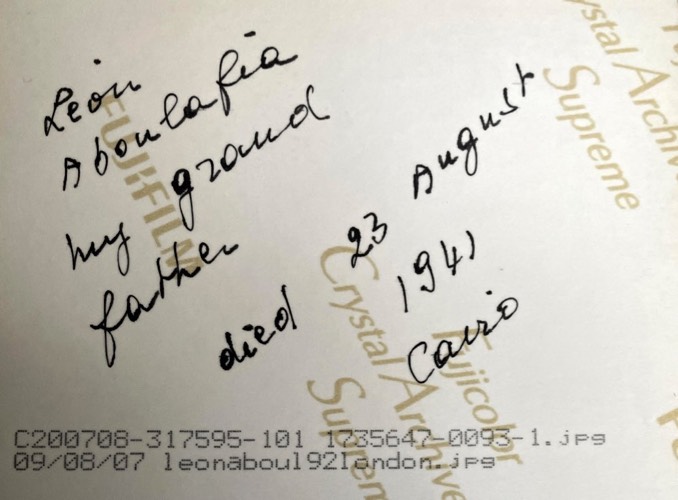 Leon
Aboulafia
my grand
father
died 23 August
1941
Cairo
FUJIFILM
Crystal Archive
Supreme
Fujicolor
Crystal Archive
Supreme
C200708-317595-101 1735647-0093-1.jpg
09/08/07 leonaboul92london.jpg